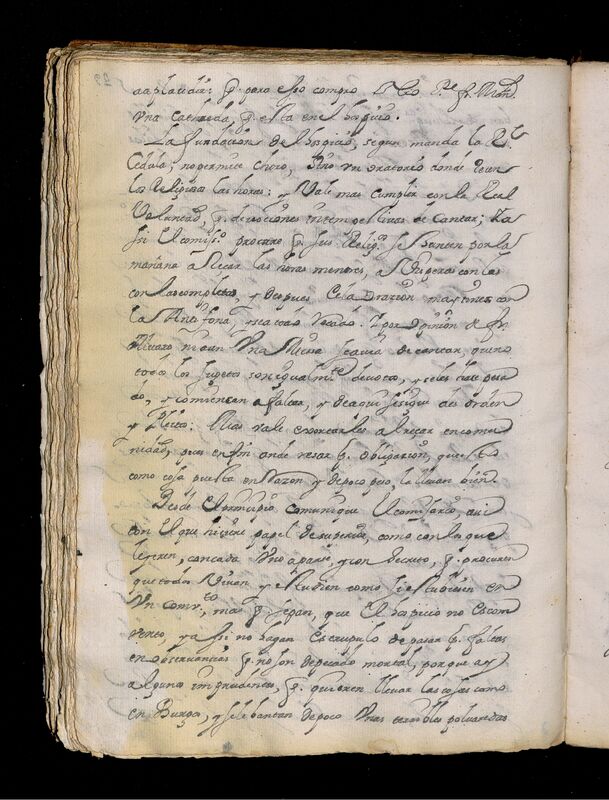 aaplaudir: q. para esso compro el Rdo P.e fr. Man.l
vna Calzada, q. esta en el hospicio.
La fundacion del hospicio, segun manda la R.l
Cedula, no permite choro, sino vn oratorio donde recen
los Religiosos las horas: y Vale mas cumplir con la Real
Voluntad, q. devociones intempestivas de Cantar; Ya
si el comiss.o procure q. sus Relig.s se Junten por la
mañana a Rezar las horas menores, a Visperas con las
con las completas, y despues Cela oracion maytines con
la Antifona, y sea todo rezado. Y por opinion de fr.
Alvaro ni aun vna Missa se avia de cantar, que no
todos los sugetos son igualm.te devotos, y se les hace pesa
do, y comiensan a faltar, y de aqui se sigue des orden
y Pleito: Mas vale exortarles a Rezar en comu
nidad, pues en fin ande resar p. obligacion, que esto
como cosa puesta en Razon y de poco peso, la llevan bien.
Desde el principio comunique el comissario, assi
con el que hiziere papel de superior, como con los que
leyeren, con cada vno aparte, y con secreto, q. procuren
que todos Vivan y estudien como si estubiesen en
vn Conv.to, mas q. sepan, que el hospicio no es Con
vento, y assi no hagan escrupulo de pasar p. faltas
en observancias q. no son de pecado mortal, porque ay
algunos imprudentes, q. quieren llevar las cosas como
en Burgos, y se levantan de poco vnas terribles polvaredas